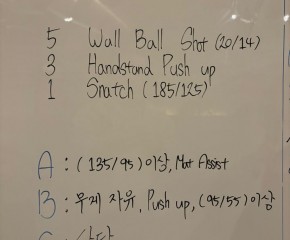 5 Wall Ball Shot (20/14)
3 Handstand Push up
1 Snatch (185/125)
A : (135/95)이상, Mat Assist
B : 무게 자유, Push up, (95/55)이상